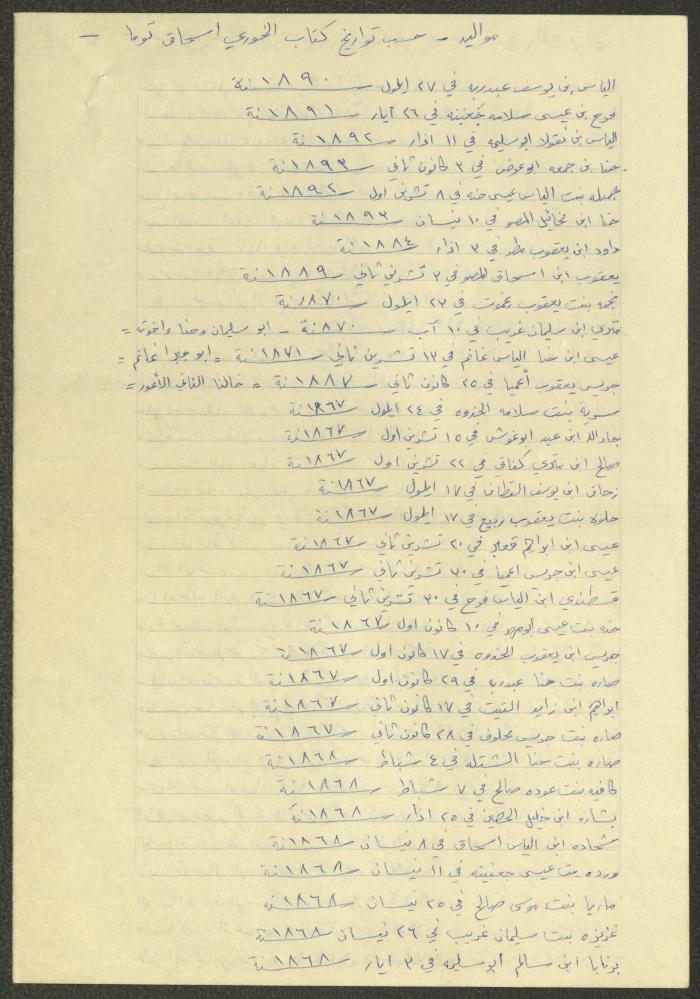 مواليد - حسب تواريخ كتاب الخوري اسحاق توما -
الياس بن يوسف عبدربه في ٢٧ ايلول سنة ١٨٩٠
فرح بن عيسى سلامه جغنينه في ٢٦ أيار سنة ١٨٩١
الياس بن نقولا ابو سليمه في ١١ اذار سنة ١٨٩٢
حنا بن جمعه ابو عوض في ٣ كانون ثاني سنة ١٨٩٣
جميله بنت الياس عيسى حنه في ٨ تشرين اول سنة ١٨٩٢
حنا ابن مخائيل المصو في ١٠ نيسان سنة ١٨٩٣
داود ابن يعقوب مطر في ٣ اذار سنة ١٨٨٤
يعقوب ابن اسحاق المصو في ٣ تشرين ثاني سنة ١٨٨٩
نجمه بنت يعقوب في ٢٣ ايلول سنة ١٨٧٠
متري ابن سليمان غريب في ١٠ آب سنة ٨٧٠ - ابو سليمان وحنا واخوته =
عيسى ابن حنا الياس غانم في ١٣ تشرين ثاني سنة ١٨٧١ = ابو جبرا غانم =
جريس يعقوب أعميا في ٢٥ كانون ثاني سنة ١٨٨٧ = خالنا الفاني الأعور =
بنت سلامه الجذوه في ٢٤ ايلول سنة ١٨٦٧
جادالله ابن عيد ابو غوش في ١٥ تشرين اول سنة ١٨٦٧
صالح ابن متري كفافي في ٢٢ تشرين اول سنة ١٨٦٧
ابن يوسف القطان في ١٧ ايلول سنة ١٨٦٧
حلوه بنت يعقوب ربيع في ١٧ ايلول سنة ١٨٦٧
عيسى ابن ابراهيم قعبر في ٢٠ تشرين ثاني سنة ١٨٦٧
عيسى ابن جريس اعميا في ٣٠ تشرين ثاني سنة ١٨٦٧
قسطندي ابن الياس فرح في ٣٠ تشرين ثاني سنة ١٨٦٧
حنه بنت عيسى ابو مهر في ١٠ كانون اول سنة ١٨٦٧
جريس ابن يعقوب الجذوه في ١٧ كانون اول سنة ١٨٦٧
صاره بنت حنا عبدربه في ٢٩ كانون اول سنة ١٨٦٧
ابراهيم ابن زايد التيت في ١٧ كانون ثاني سنة ١٨٦٧
صاره بنت جريس مخلوف في ٢٨ كانون ثاني سنة ١٨٦٧
صاره بنت حنا الشتله في ٤ شباط سنة ١٨٦٨
كافيه بنت عوده صالح في ٧ شباط سنة ١٨٦٨
بشاره ابن خليل الحصين في ٢٥ اذار سنة ١٨٦٨
شحاده ابن الياس اسحاق في ٨ نيسان سنة ١٨٦٨
ورده بنت عيسى جغنينه في ١١ نيسان سنة ١٨٦٨
ماريا بنت موسى صالح في ٢٥ نيسان سنة ١٨٦٨
عزيزه بنت سليمان غريب في ٢٦ نيسان سنة ١٨٦٨
برنابا ابن سالم أبو سليمه في ٣ ايار سنة ١٨٦٨